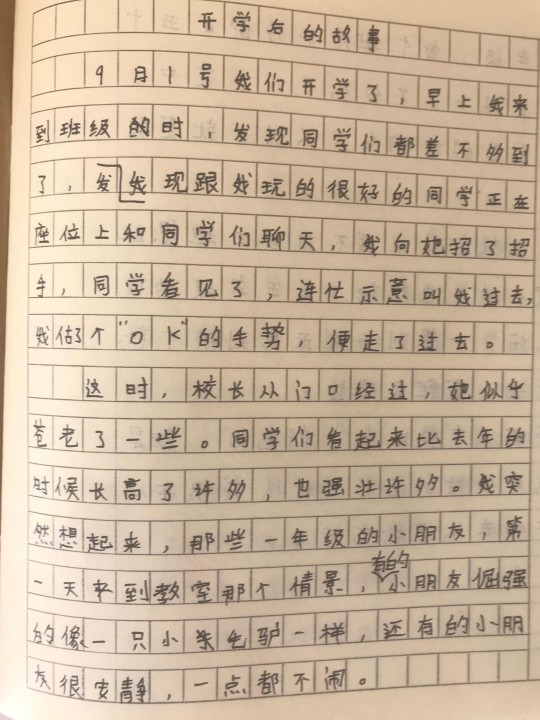 开学后的故事
9月1号我们开学了，早上我来
到班级的时，发现同学们都差不多到
了，发我现跟我玩的很好的同学正在
座位上和同学们聊天，我向她招了招
手，同学看见了，连忙示意叫我过去，
我估了个“OK”的手势，便走了过去。
这时，校长从门口经过，她似乎
苍老了一些。同学们看起来比去年的
时候长高了许多，也强壮许多。我突
然想起来，那些一年级的小朋友，第
一天来到教室那个情景，有的小朋友倔强
的像一只小朱毛驴一样，还有的小朋
友很安静，一点都不闹。